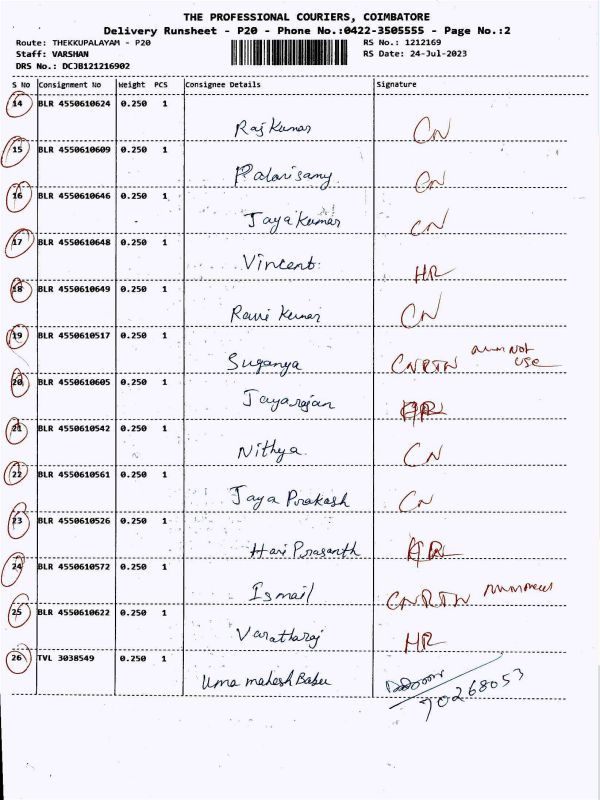 THE PROFESSIONAL COURIERS, COIMBATORE
Delivery Runsheet - P20 - Phone No.:0422-3505555 - Page No.:2
Route: THEKKUPALAYAM - P20 RS No.: 1212169
Staff: VARSHAN RS Date: 24-Jul-2023
DRS No.: DCJB121216902
S No Consignment No Weight PCS Consignee Details Signature
14 BLR 4550610624 0.250 1
Raj Kumar CN
15 BLR 4550610609 0.250 1
Palanisamy CN
16 BLR 4550610646 0.250 1
Jaya Kumar CN
17 BLR 4550610648 0.250 1
Vincent HR
18 BLR 4550610649 0.250 1
Ravi Kumar CN
19 BLR 4550610517 0.250 1
Suganya CNRTN Not use
20 BLR 4550610605 0.250 1
Jayarajan HR
21 BLR 4550610542 0.250 1
Nithya CN
22 BLR 4550610561 0.250 1
Jaya Prakash CN
23 BLR 4550610526 0.250 1
Hari Prasanth HR
24 BLR 4550610572 0.250 1
Ismail CNRTN
25 BLR 4550610622 0.250 1
Varatharaj HR
26 TVL 3038549 0.250 1
Uma mahesh Babu
90268053